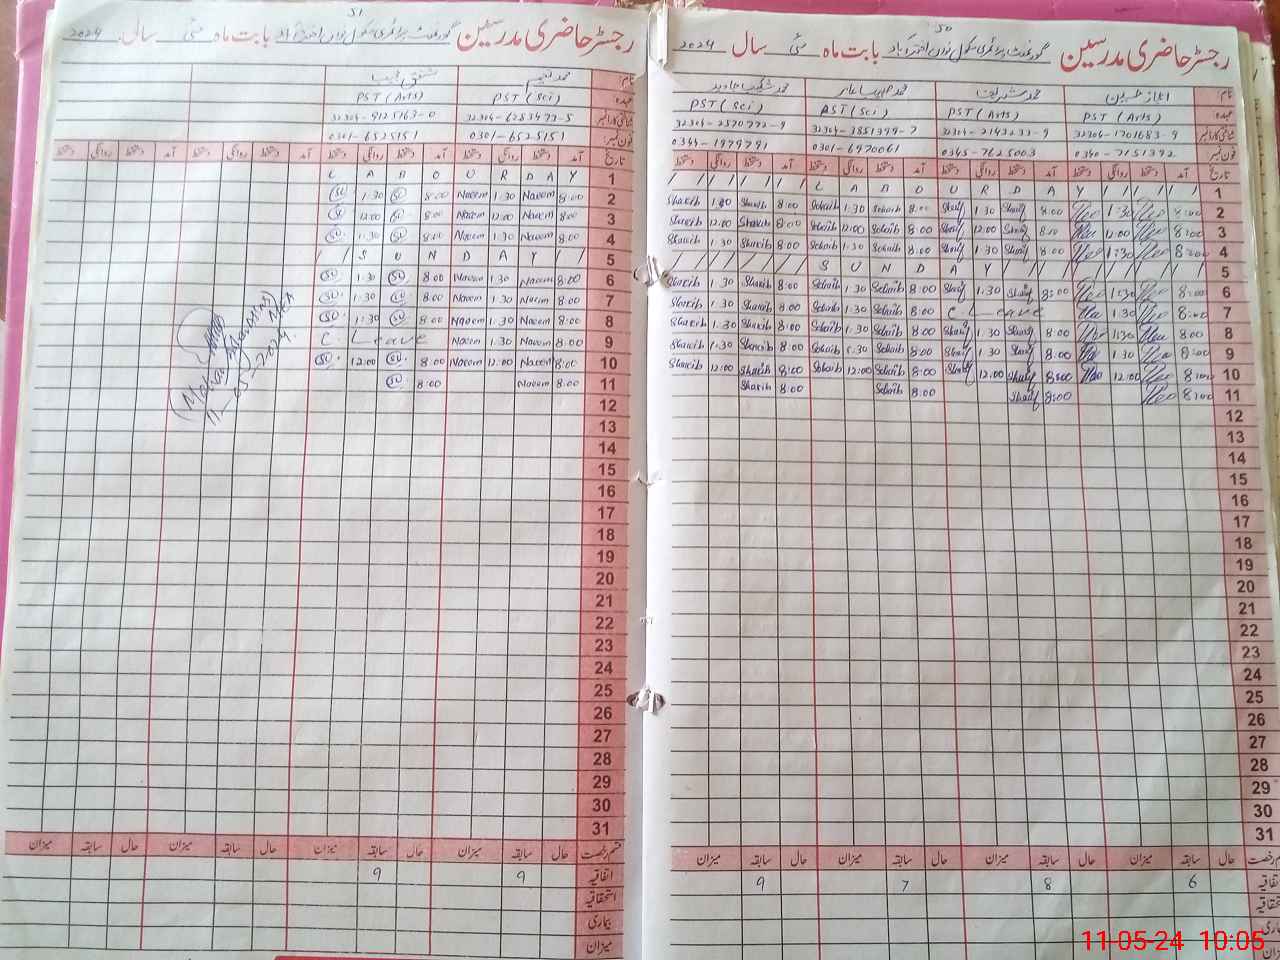 50
رجسٹر حاضری مدرسین گورنمنٹ پرائمری سکول نواں احمد آباد بابت ماہ مئی سال 2024
نام: اعجاز حسین محمد شریف محمد صہیب عامر محمد شکیب جاوید
عہدہ PST (Arts) PST (Arts) PST (Sci) PST (Sci)
شناختی کارڈ نمبر 32304-1701683-9 32304-2143233-9 32304-3851399-7 32304-2570772-9
فون نمبر: 0340-7151392 0345-7625003 0301-6970061 0344-1979791
تاریخ آمد دستخط روانگی دستخط آمد دستخط روانگی دستخط آمد دستخط روانگی دستخط آمد دستخط روانگی دستخط
1 L A B O U R D A Y
2 Shakib 1:30 Shakib 8:00 Sohaib 1:30 Sohaib 8:00 Sharif 1:30 Sharif 8:00 1:30 8:00
3 Shakib 12:00 Shakib 8:00 Sohaib 12:00 Sohaib 8:00 Sharif 12:00 Sharif 8:00 12:00 8:00
4 Shakib 1:30 Shakib 8:00 Sohaib 1:30 Sohaib 8:00 Sharif 1:30 Sharif 8:00 1:30 8:00
5 S U N D A Y
6 Shakib 1:30 Shakib 8:00 Sohaib 1:30 Sohaib 8:00 Sharif 1:30 Sharif 8:00 1:30 8:00
7 Shakib 1:30 Shakib 8:00 Sohaib 1:30 Sohaib 8:00 C. Leave 1:30 8:00
8 Shakib 1:30 Shakib 8:00 Sohaib 1:30 Sohaib 8:00 Sharif 1:30 Sharif 8:00 1:30 8:00
9 Shakib 1:30 Shakib 8:00 Sohaib 1:30 Sohaib 8:00 Sharif 1:30 Sharif 8:00 1:30 8:00
10 Shakib 12:00 Shakib 8:00 Sohaib 12:00 Sohaib 8:00 Sharif 12:00 Sharif 8:00 12:00 8:00
11 Shakib 8:00 Sohaib 8:00 Sharif 8:00 8:00
12
13
14
15
16
17
18
19
20
21
22
23
24
25
26
27
28
29
30
31
قسم رخصت حال سابقہ میزان حال سابقہ میزان حال سابقہ میزان حال سابقہ میزان
اتفاقیہ 6 8 7 9
استحقاقیہ
بیماری
میزان
51
رجسٹر حاضری مدرسین گورنمنٹ پرائمری سکول نواں احمد آباد بابت ماہ مئی سال 2024
نام: محمد نعیم مشتاق
عہدہ PST (Sci) PST (Arts)
شناختی کارڈ نمبر 32304-6253493-5 32304-9125163-0
فون نمبر: 0301-6525151 0301-6525151
تاریخ آمد دستخط روانگی دستخط آمد دستخط روانگی دستخط آمد دستخط روانگی دستخط آمد دستخط روانگی دستخط
1 L A B O U R D A Y
2 1:30 8:00 Naeem 1:30 Naeem 8:00
3 12:00 8:00 Naeem 12:00 Naeem 8:00
4 1:30 8:00 Naeem 1:30 Naeem 8:00
5 S U N D A Y
6 1:30 8:00 Naeem 1:30 Naeem 8:00
7 1:30 8:00 Naeem 1:30 Naeem 8:00
8 1:30 8:00 Naeem 1:30 Naeem 8:00
9 C. Leave Naeem 1:30 Naeem 8:00
10 12:00 8:00 Naeem 12:00 Naeem 8:00
11 8:00 Naeem 8:00
12
13
14
15
16
17
18
19
20
21
22
23
24
25
26
27
28
29
30
31
11-05-2024
قسم رخصت حال سابقہ میزان حال سابقہ میزان حال سابقہ میزان حال سابقہ میزان
اتفاقیہ 9 9
استحقاقیہ
بیماری
میزان
11-05-24 10:05